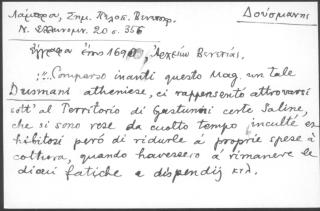 Δούσμανης
Λάμπρος, Σημ. Πελοπ. Βενετοκρ.
Ν. Ἑλληνομν. 20 σ. 356
Ἔγγραφα ἔτους 1690, Ἀρχείων Βενετίας,
:"Comparso inanti questo Mag. un tale
Dusmani atheniese, ci rappersentò attrovarsi
sott' al Territorio di Gastunni certe Saline,
che si sono rese da cuotto tempo incultè ex
hibitosi però di ridurle à proprie spese à
coltura, quando havessero à rimanere le
di cui fatiche a dispendij κτλ.